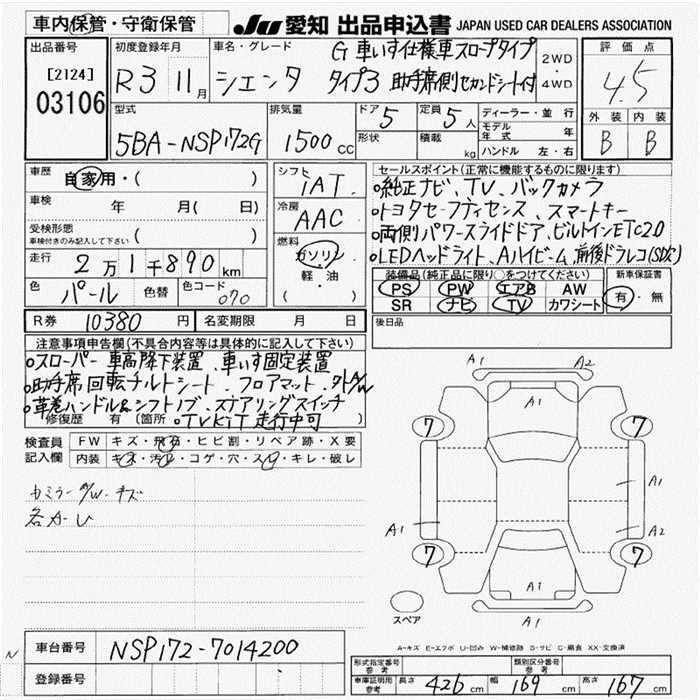 車内保管・守衛保管
JU 愛知 出品申込書 JAPAN USED CAR DEALERS ASSOCIATION
出品番号
[2124]
03106
初度登録年月
R3 11月
車名・グレード
シエンタ
G 車いす仕様車スロープタイプ
タイプ3 助手席側セカンドシート付
2WD
4WD
評価点
4.5
外装 内装
B B
型式
5BA-NSP172G
排気量
1500cc
ドア 5
形状
定員 5人
積載 kg
ディーラー・並行
モデル年式 年
ハンドル 左・右
車歴
自家用・( )
車検 年 月( 日)
受検形態
車検付きのみ記入して下さい ( )
走行
2万1千890km
色 パール 色替
色コード 070
シフト
IAT
冷房
AAC
燃料
ガソリン
軽・油
セールスポイント(正常に機能するものに限ります)
○純正ナビ、TV、バックカメラ
○トヨタセーフティセンス、スマートキー
○両側パワースライドドア、ビルトインETC2.0
○LEDヘッドライト、Aハイビーム、前後ドラレコ(SD欠)
装備品(純正品に限り○をつけてください)
PS PW エアB AW
SR ナビ TV カワシート
新車保証書
有・無
R券 10380円
名変期限 月 日
後日品
注意事項申告欄(不具合内容等は具体的に記入して下さい)
○スローパー 車高降下装置、車いす固定装置
○助手席回転チルトシート、フロアマット、外A/W
○革巻ハンドル&シフトノブ、ステアリングスイッチ
修復歴 有(箇所 ○TVKIT 走行中可)
検査員
記入欄
FW キズ・飛石・ヒビ割・リペア跡・X要
内装 キズ・汚れ・コゲ・穴・スレ・キレ・破レ
各A-U
A1 A2
A1
7 7
A1
A1 A2
7 7
A1
A1
スペア
A-キズ E-エクボ U-凹み W-補修跡 S-サビ C-腐食 XX-交換済
N
車台番号 NSP172-7014200
登録番号
形式指定番号
参考
類別区分番号
参考
車庫証明用
参考
長さ 426cm 幅 169cm 高さ 167cm